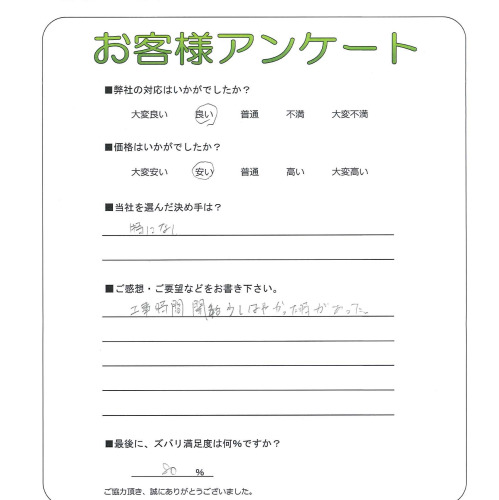 お客様アンケート
■弊社の対応はいかがでしたか？
大変良い 良い 普通 不満 大変不満
■価格はいかがでしたか？
大変安い 安い 普通 高い 大変高い
■当社を選んだ決め手は？
特になし
■ご感想・ご要望などをお書き下さい。
工事時間 開始 少しはやかった時があった。
■最後に、ズバリ満足度は何％ですか？
80 ％
ご協力頂き、誠にありがとうございました。